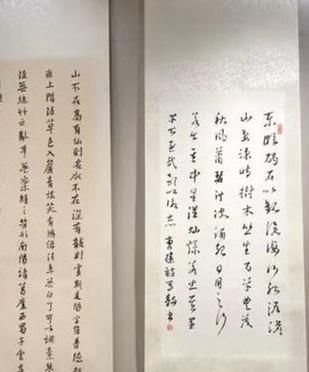 東臨碣石以觀滄海水何澹澹
山島竦峙樹木丛生百草豐茂
秋風蕭瑟洪波涌起日月之行
若出其中星漢燦爛若出其里
幸甚至哉歌以咏志 曹操詩
山不在高有仙則名水不在深有龍則靈斯是陋室惟吾德馨
痕上階綠草色入簾青談笑有鴻儒往來無白丁可以調素琴
經無絲竹之亂耳無案牘之勞形南陽諸葛廬西蜀子雲亭